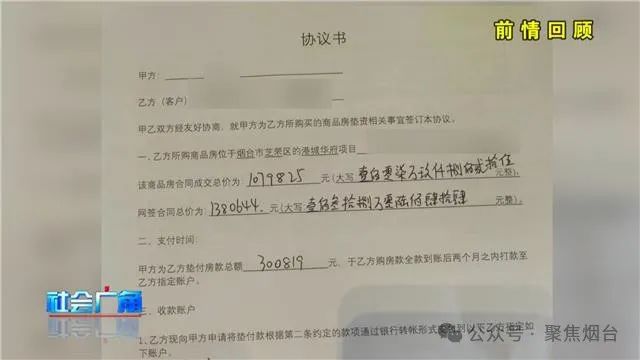 前情回顾
协议书
甲方：
乙方（客户）
甲乙双方经友好协商，就甲方为乙方所购买的商品房垫资相关事宜签订本协议。
一、乙方所购商品房位于烟台市芝罘区的港城华府项目
该商品房合同成交总价为：1079825 元（大写：壹佰零柒万玖仟捌佰贰拾伍 元整）。
网签合同总价为：1380644. 元（大写：壹佰叁拾捌万零陆佰肆拾肆 元整）。
二、支付时间：
甲方为乙方垫付房款总额 300819 元，于乙方购房款全款到账后两个月之内打款至
乙方指定账户。
三、收款账户
1、乙方现向甲方申请将垫付款根据第二条约定的款项通过银行转帐形式 到以下乙方指定如
下账户。
社会广角
公众号·聚焦烟台